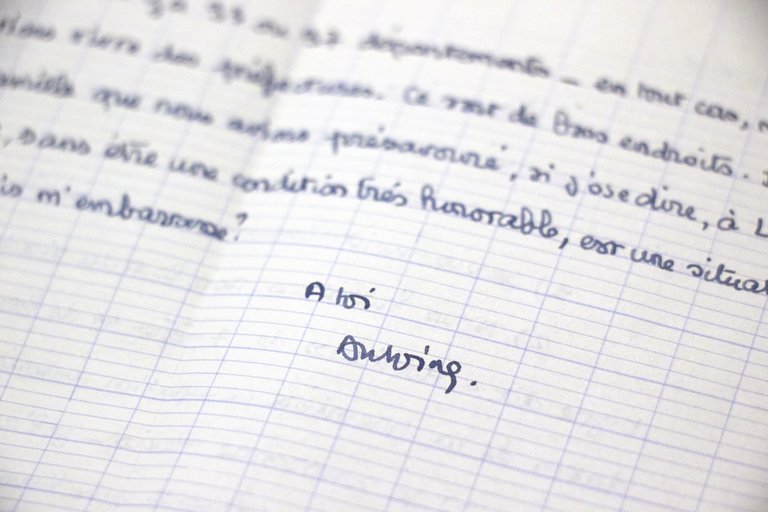 départements - en tout cas,
des préfectures. Ce sont de bons endroits.
que nous avions présavouré, si j'ose dire, à L
, sans être une condition très honorable, est une situat
is m'embarrasse?
A toi
Antoine.